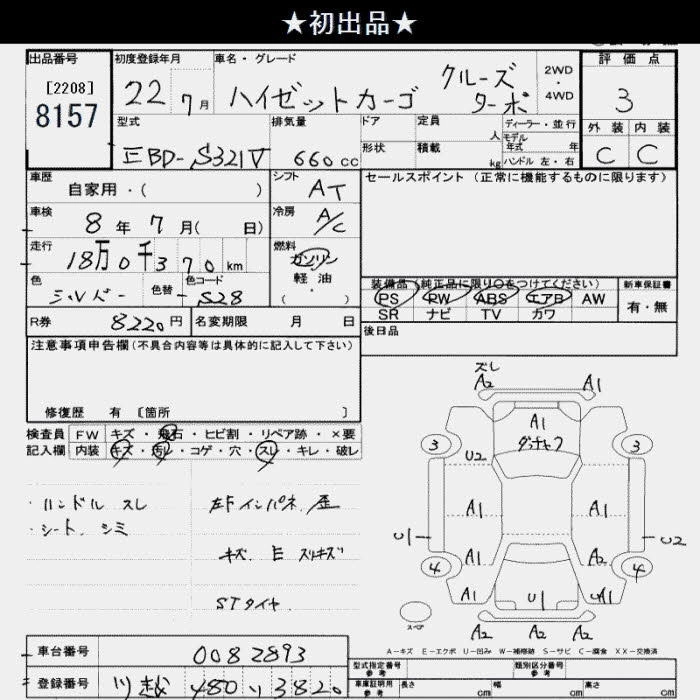 ★初出品★
出品番号
[2208]
8157
初度登録年月
22 7月
車名・グレード
ハイゼットカーゴ クルーズ ターボ
2WD
・
4WD
評価点
3
型式
EBD-S321V
排気量
660cc
ドア
定員
人
ディーラー・並行
モデル
年式 年
形状
積載
kg
ハンドル 左・右
外装 内装
C C
車歴
自家用・( )
シフト
AT
セールスポイント (正常に機能するものに限ります)
車検
8年 7月( 日)
冷房
A/C
走行
18万0千370km
燃料
ガソリン
軽油
( ・ )
色
シルバー
色替
色コード
S28
装備品 (純正品に限り○をつけてください)
新車保証書
PS PW ABS エアB AW
有・無
SR ナビ TV カワ
R券 8220円
名変期限 月 日
後日品
注意事項申告欄(不具合内容等は具体的に記入して下さい)
修復歴 有 〔箇所 〕
検査員
記入欄
FW キズ・飛石・ヒビ割・リペア跡・×要
内装 キズ・汚レ・コゲ・穴・スレ・キレ・破レ
・ハンドル スレ
・シート、シミ
左Fインパネ、歪
キズ E スリキズ
STタイヤ
ズレ
A2 A1
A1
3 3
U2
A1 A1
U1 U2
A1 A2
4 4
A1 U1 A1
スペア
A2 A2 A2
A-キズ E-エクボ U-凹み W-補修跡 S-サビ C-腐食 XX-交換済
車台番号
0082893
登録番号
川越 480 い 3820
型式指定番号
参考
類別区分番号
参考
車庫証明用
参考
長さ cm 幅 cm 高さ cm